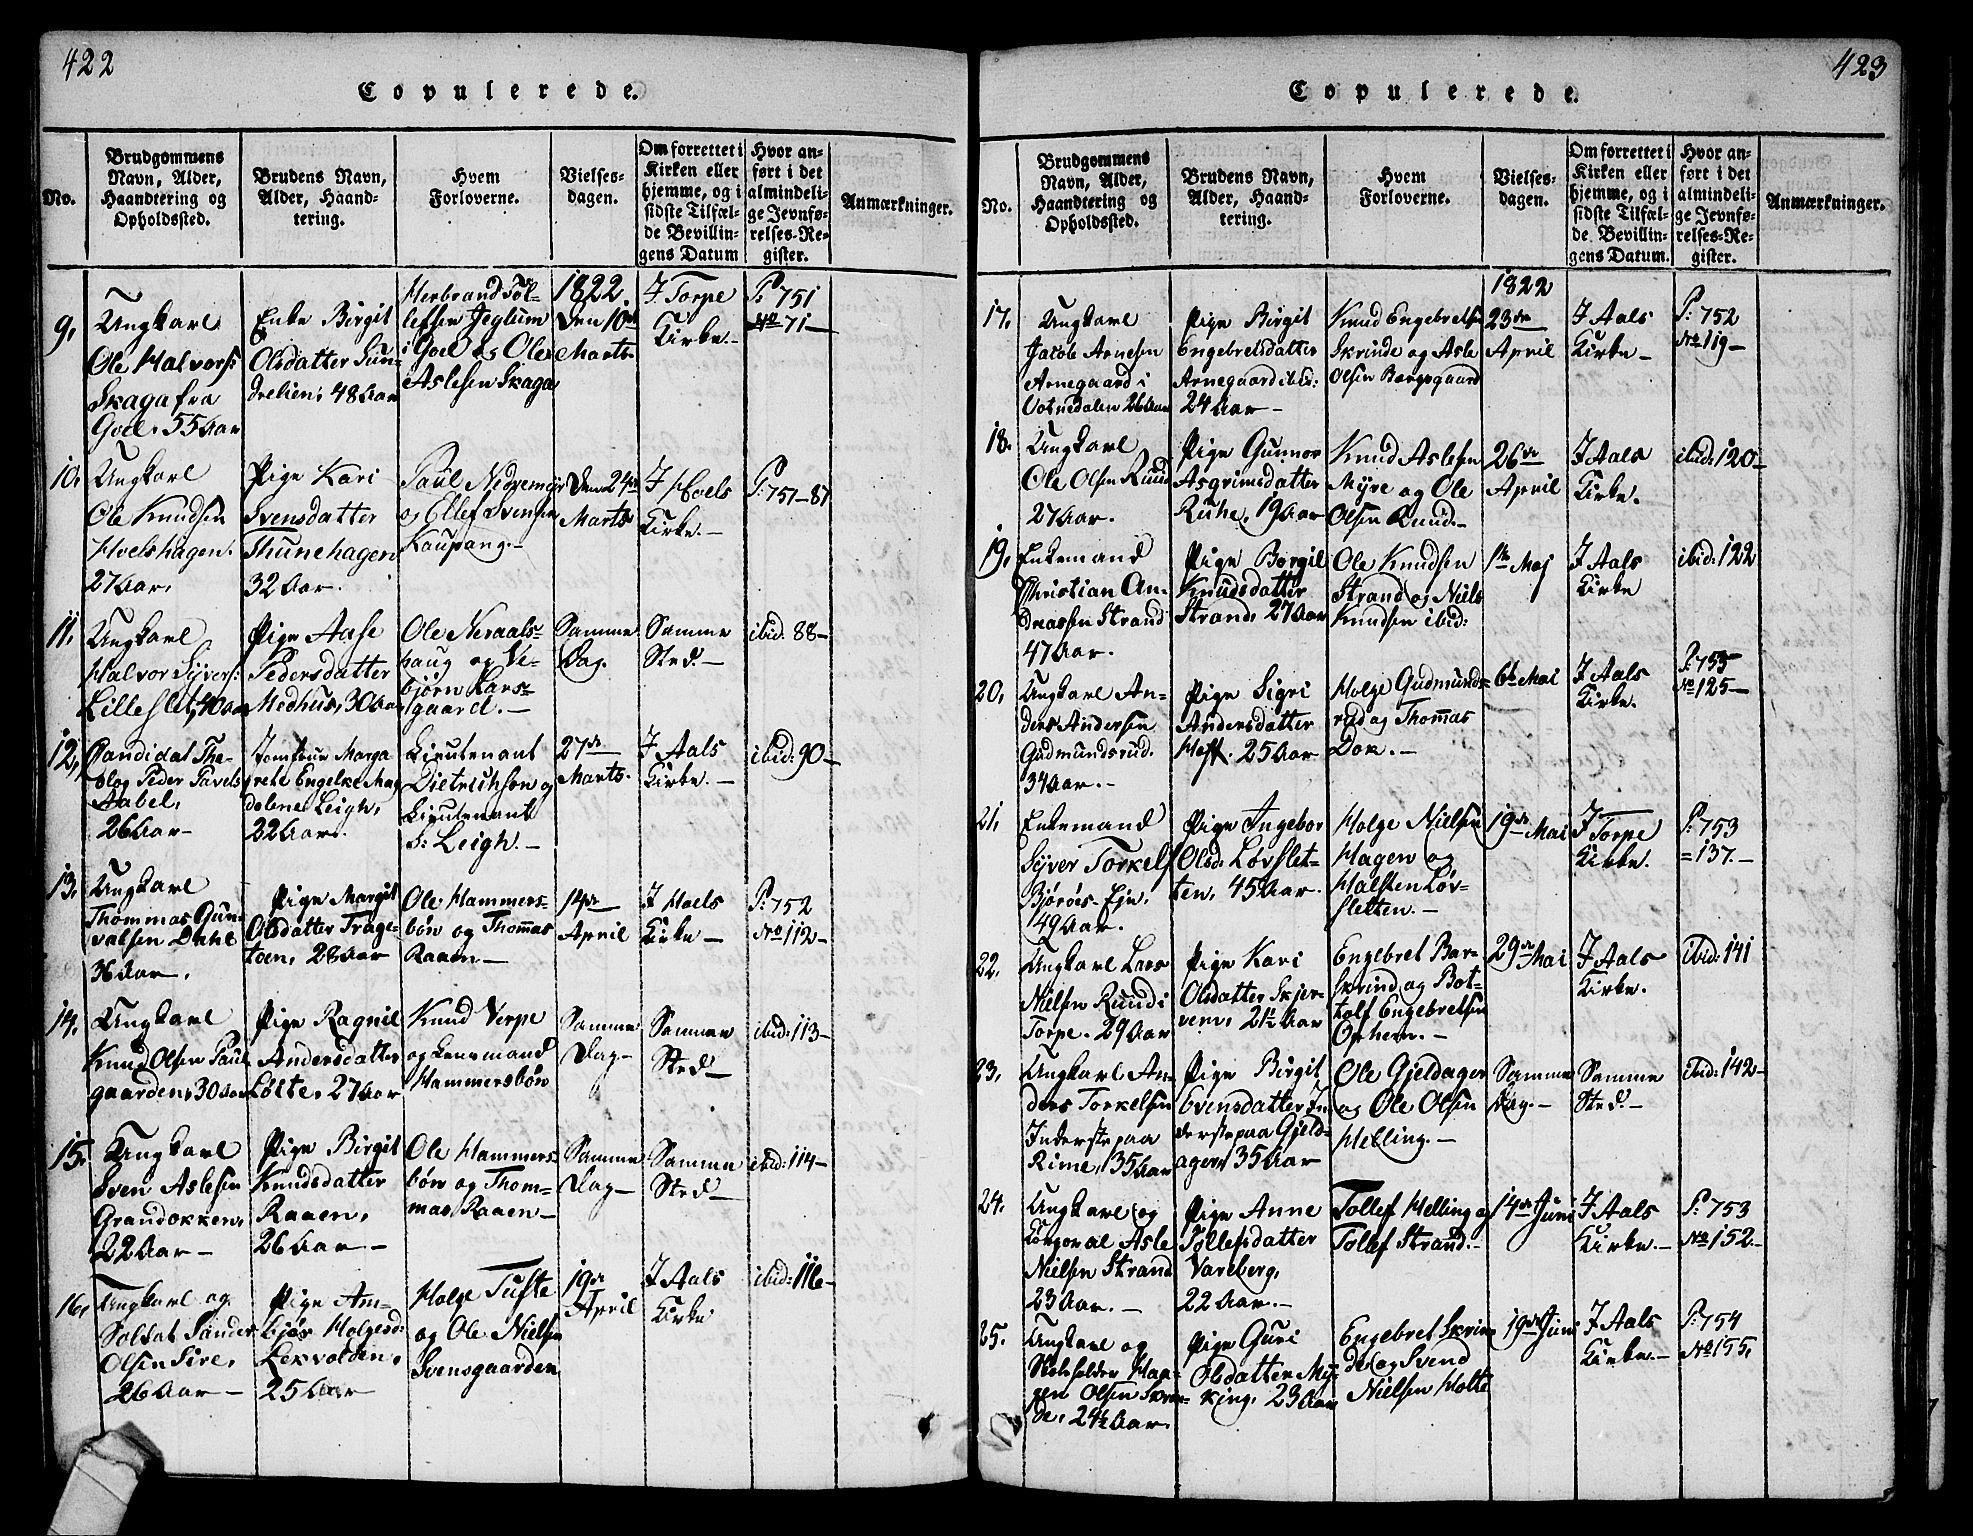 422
Copulerede.
No.
Brudgommens
Navn, Alder,
Haandtering og
Opholdssted.
Brudens Navn,
Alder, Haand-
tering.
Hvem
Forloverne.
Vielses-
dagen.
Om forrettet i
Kirken eller
hjemme, og i
sidste Tilfæl-
de Bevillin-
gens Datum
Hvor an-
ført i det
almindeli-
ge Jevnfø-
relses-Re-
gister.
Anmærkninger.
9,
Ungkarl
Ole Halvors:
Skaga fra
Goel, 55 Aar
Enke Birgit
Olsdatter Sun-
drelien, 48 Aar
Herbrand Tol-
lefsen Jeglum
i Goel og Ole
Aslesen Skaga
1822.
Den 10de
Marts
I Torpe
Kirke.-
P: 751
No 71-
10,
Ungkarl
Ole Knudsen
Hoelshagen.
27 Aar,
Pige Kari
Svensdatter
Thunehagen
32 Aar.
Paul Nedremyr
og Ellef Svensen
Kaupang.-
Den 24de
Marts
I Hoels
Kirke.-
P: 751-87
11,
Ungkarl
Halvor Syvers:
Lilleslet, 40 Aar
Pige Aase
Pedersdatter
Medhus, 30 Aar
Ole Neraals-
haug og Ve-
bjørn Kars-
gaard.-
Samme
Dag.
Samme
Sted.-
ibid: 88-
12,
Candidat The-
olog Peder Pavels
Aabel,
26 Aar-
Jomfrue Marga
grete Engelke Mag
dolene Leigh,
22 Aar.
Lieutenant
Dietrichson og
Lieutenant
S: Leigh.-
27de
Marts.
I Aals
Kirke.-
ibid: 90-
13,
Ungkarl
Thommas Gun-
valsen Dahl
36 Aar,
Pige Margit
Olsdatter Trage-
toen, 28 Aar
Ole Hammers-
bøn og Thomas
Raaen-
14de
April
I Hoels
Kirke-
P: 752
No 112-
14,
Ungkarl
Knud Olsen Paul
gaarden, 30 Aar
Pige Ragnil
Andersdatter
Løite, 27 Aar
Knud Verpe
og Lensmand
Hammersbøn
Samme
Dag-
Samme
Sted-
ibid: 113-
15,
Ungkarl
Sven Aslesen
Grandokken,
22 Aar-
Pige Birgit
Knudsdatter
Raaen,
26 Aar.-
Ole Hammers-
bøn og Thom-
mas Raaen-
Samme
Dag-
Samme
Sted-
ibid: 114-
16,
Ungkarl og
Soldat Sander
Olsen Sire,
26 Aar-
Pige Am-
bjør Holgesd:
Lexvolden,
25 Aar
Holge Tufte
og Ole Nielsen
Svensgaarden
19de
April
I Aals
Kirke
ibid: 116-
423
Copulerede.
No.
Brudgommens
Navn, Alder,
Haandtering og
Opholdssted.
Brudens Navn,
Alder, Haand-
tering.
Hvem
Forloverne.
Vielses-
dagen.
Om forrettet i
Kirken eller
hjemme, og i
sidste Tilfæl-
de Bevillin-
gens Datum.
Hvor an-
ført i det
almindeli-
ge Jevnfø-
relses-Re-
gister.
Anmærkninger.
17,
Ungkarl
Jacob Arnesen
Arnegaard i
Votnedalen 26 Aar
Pige Birgit
Engebretsdatter
Arnegaard ibid:
24 Aar-
Knud Engebretsen
Skrinde og Asle
Olsen Bergsgaard
1822
23de
April
I Aals
Kirke-
P: 752
No 119-
18.
Ungkarl
Ole Olsen Ruud
27 Aar.
Pige Gunnor
Asgrimsdatter
Ruhe, 19 Aar
Knud Aslesen
Myre og Ole
Olsen Ruud-
26de
April
I Aals
Kirke.
ibid: 120-
19,
Enkemand
Christian An-
dreassen Strand
47 Aar.
Pige Borgil
Knudsdatter
Strand, 27 Aar
Ole Knudsen
Strand og Niels
Knudsen ibid:
1te Maj
I Aals
Kirke
ibid: 122
20,
Ungkarl An-
ders Andersen
Gudmundsrud.
34 Aar.-
Pige Sigri
Andersdatter
Hoff. 25 Aar
Holge Gudmunds-
rud og Thomas
Dok.-
6te Mai
I Aals
Kirke.
P: 753
No 125-
21,
Enkemand
Syver Torkels
Bjøröes Eje,
49 Aar.
Pige Ingebor
Olsd: Løvslet-
ten, 45 Aar.
Holge Nielsen
Hagen og
Halsten Løv-
sletten.-
19de Mai
I Torpe
Kirke.
P: 753
=137.-
22,
Ungkarl Lars
Nielsen Ruud i
Torpe. 29 Aar
Pige Kari
Olsdatter Skjer-
ven, 21½ Aar
Engebret Bar-
skrind og Bot-
tolf Engebretsen
Opheim.-
29de Mai
I Aals
Kirke.
ibid: 141
23,
Ungkarl An-
ders Torkelsen
Inderste paa
Rime, 35 Aar
Pige Birgit
Svensdatter In-
derste paa Gjeld-
ager, 35 Aar
Ole Gjeldager
og Ole Olsen
Helling.-
Samme
Dag.-
Samme
Sted.-
ibid: 142-
24.
Ungkarl og
Corporal Asle
Nielsen Strand
23 Aar.-
Pige Anne
Tollefsdatter
Vareberg,
22 Aar.-
Tollef Helling og
Tollef Strand.-
14de Juni
I Aals
Kirke.-
P: 753
No 152.-
25.
Ungkarl og
Skoleholder Haa-
gen Olsen Skrin-
de, 24½ Aar.
Pige Guri
Olsdatter My-
king, 23 Aar
Engebret Skrin
de og Svend
Nielsen Holte
19de Juni
I Aals
Kirke.-
P: 754
No 155,